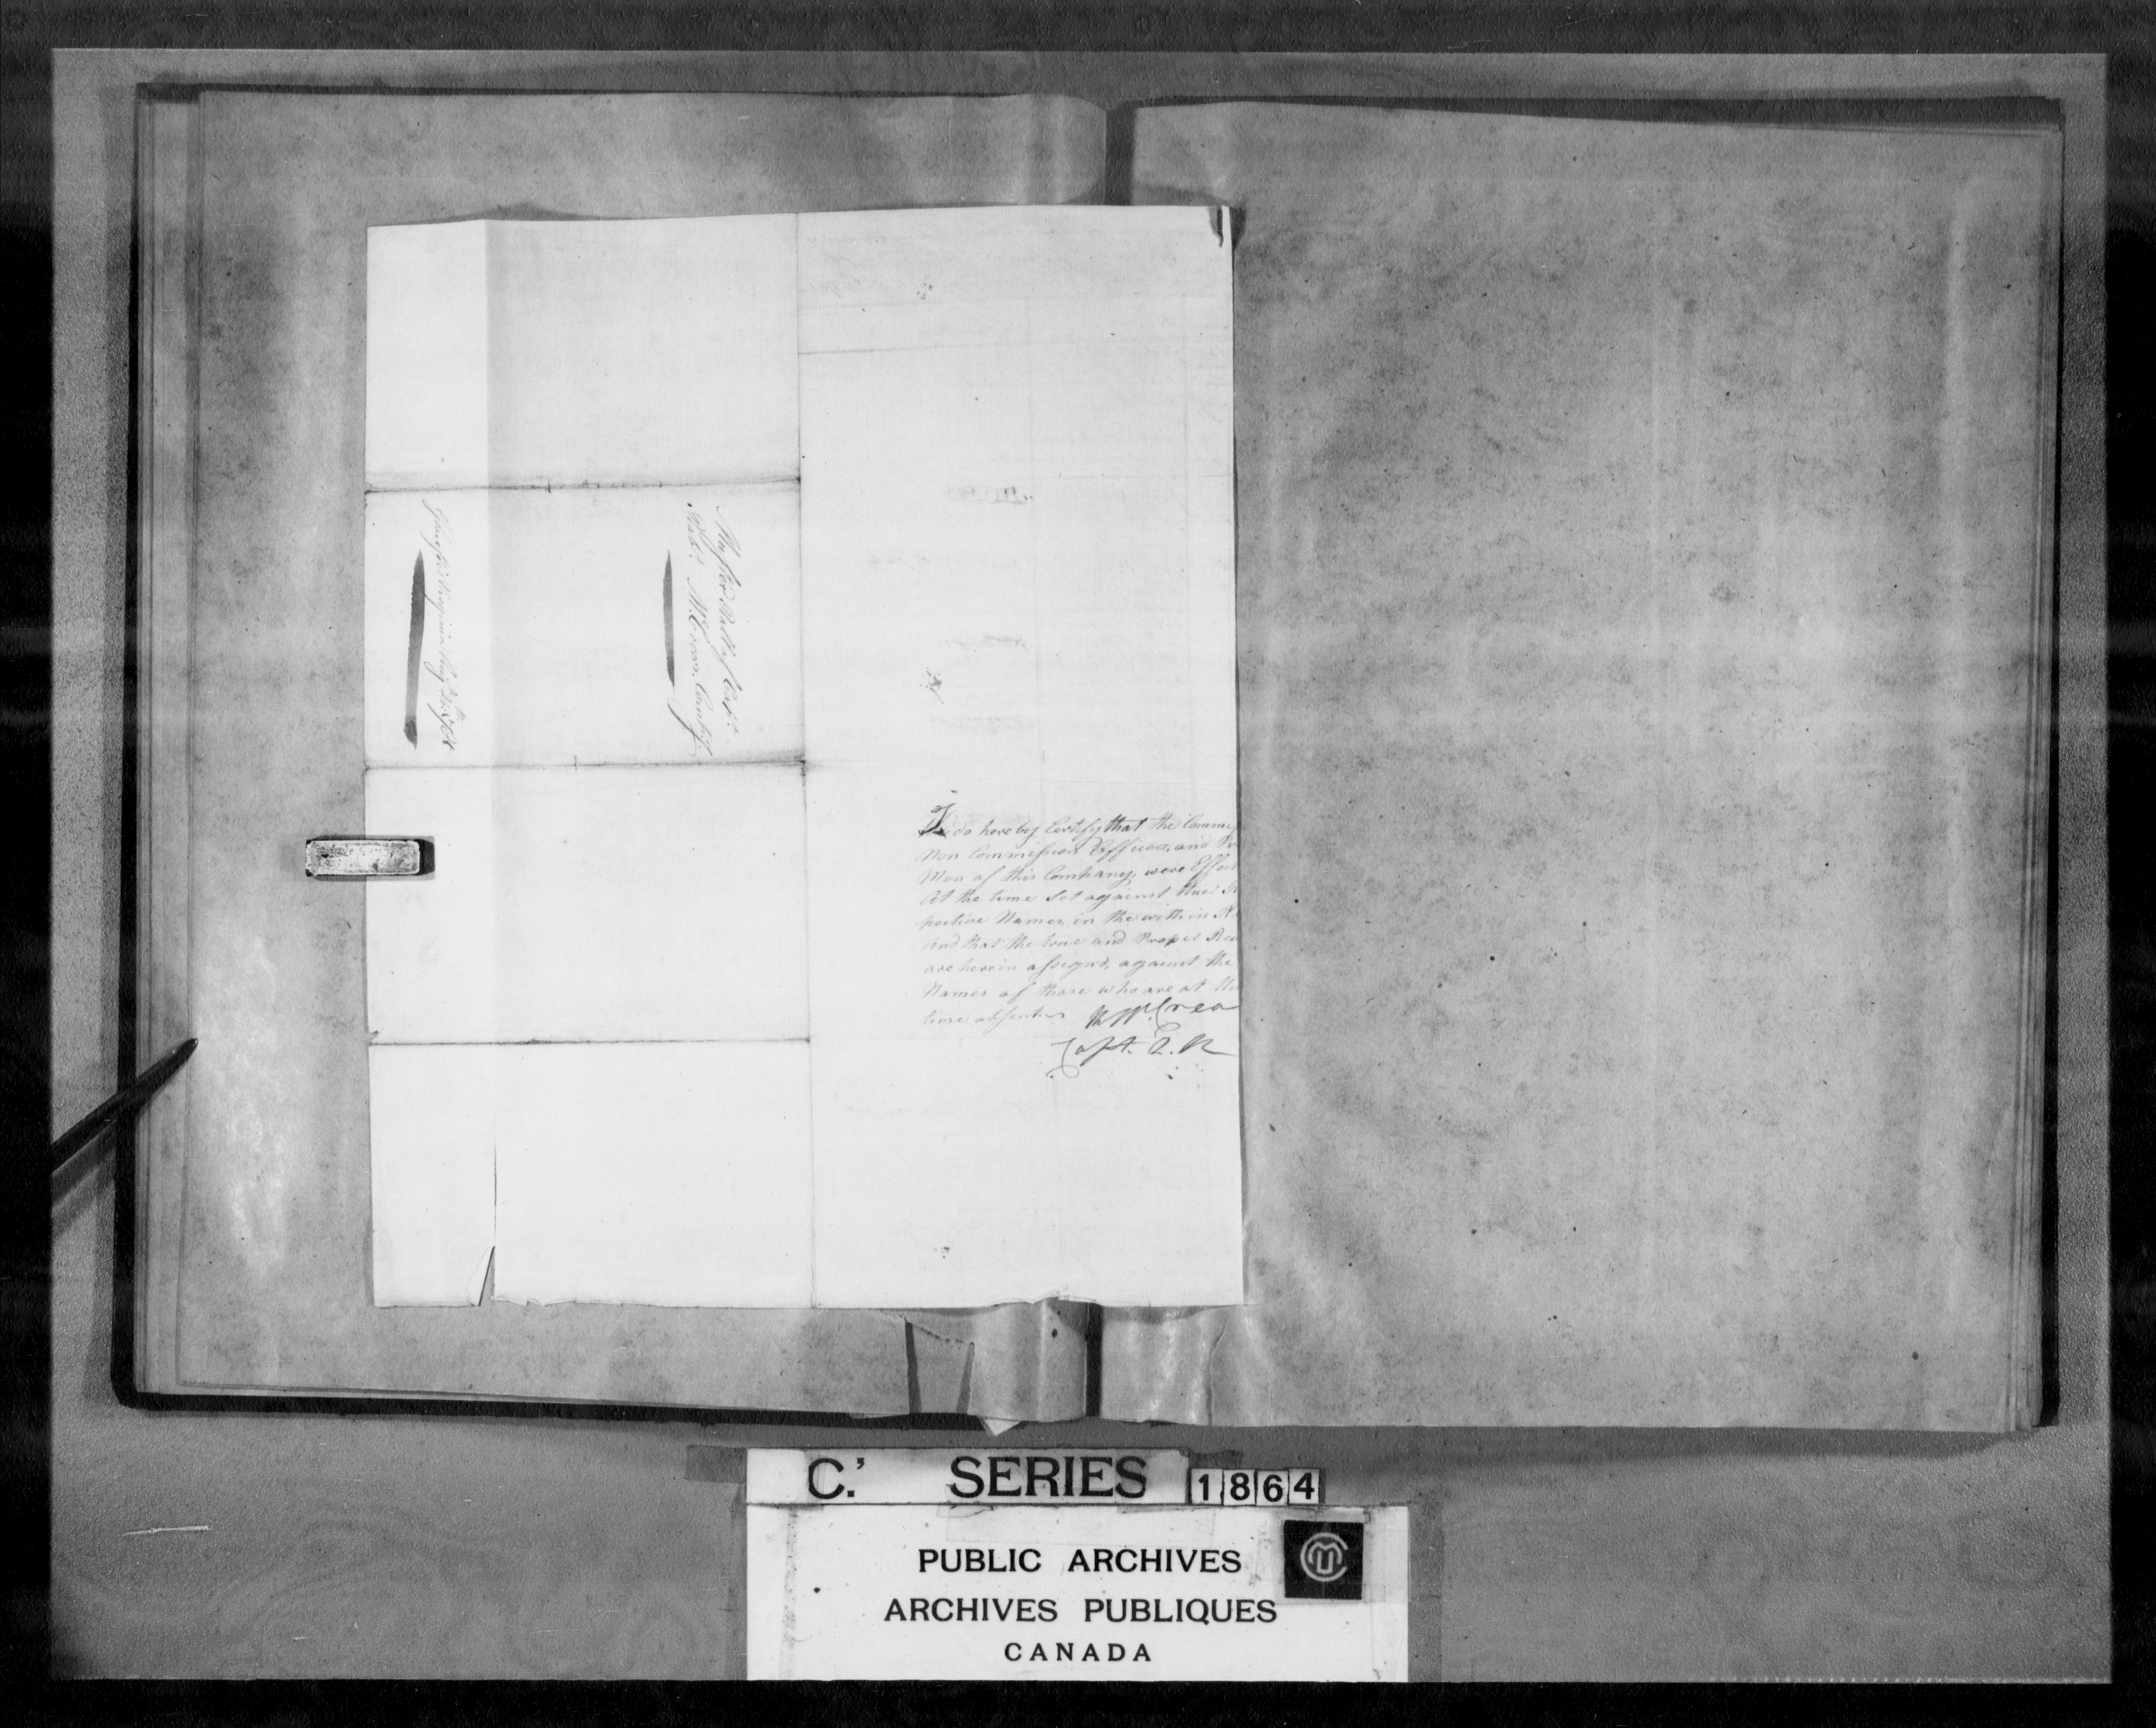 Muster Roll of Capt.
Robt. McCrea's Company
I do hereby Certify that the Commis
Non Commission'd Officers, and Pri
Men of this Company, were Effect
At the time Set against their Re
pective Names, in the within R
and that the true and Proper Rea
are herein assign'd, against the
Names of those who are at the
time absent.
R McCrea
Capt. Q. R
C. SERIES 1864
PUBLIC ARCHIVES
ARCHIVES PUBLIQUES
CANADA